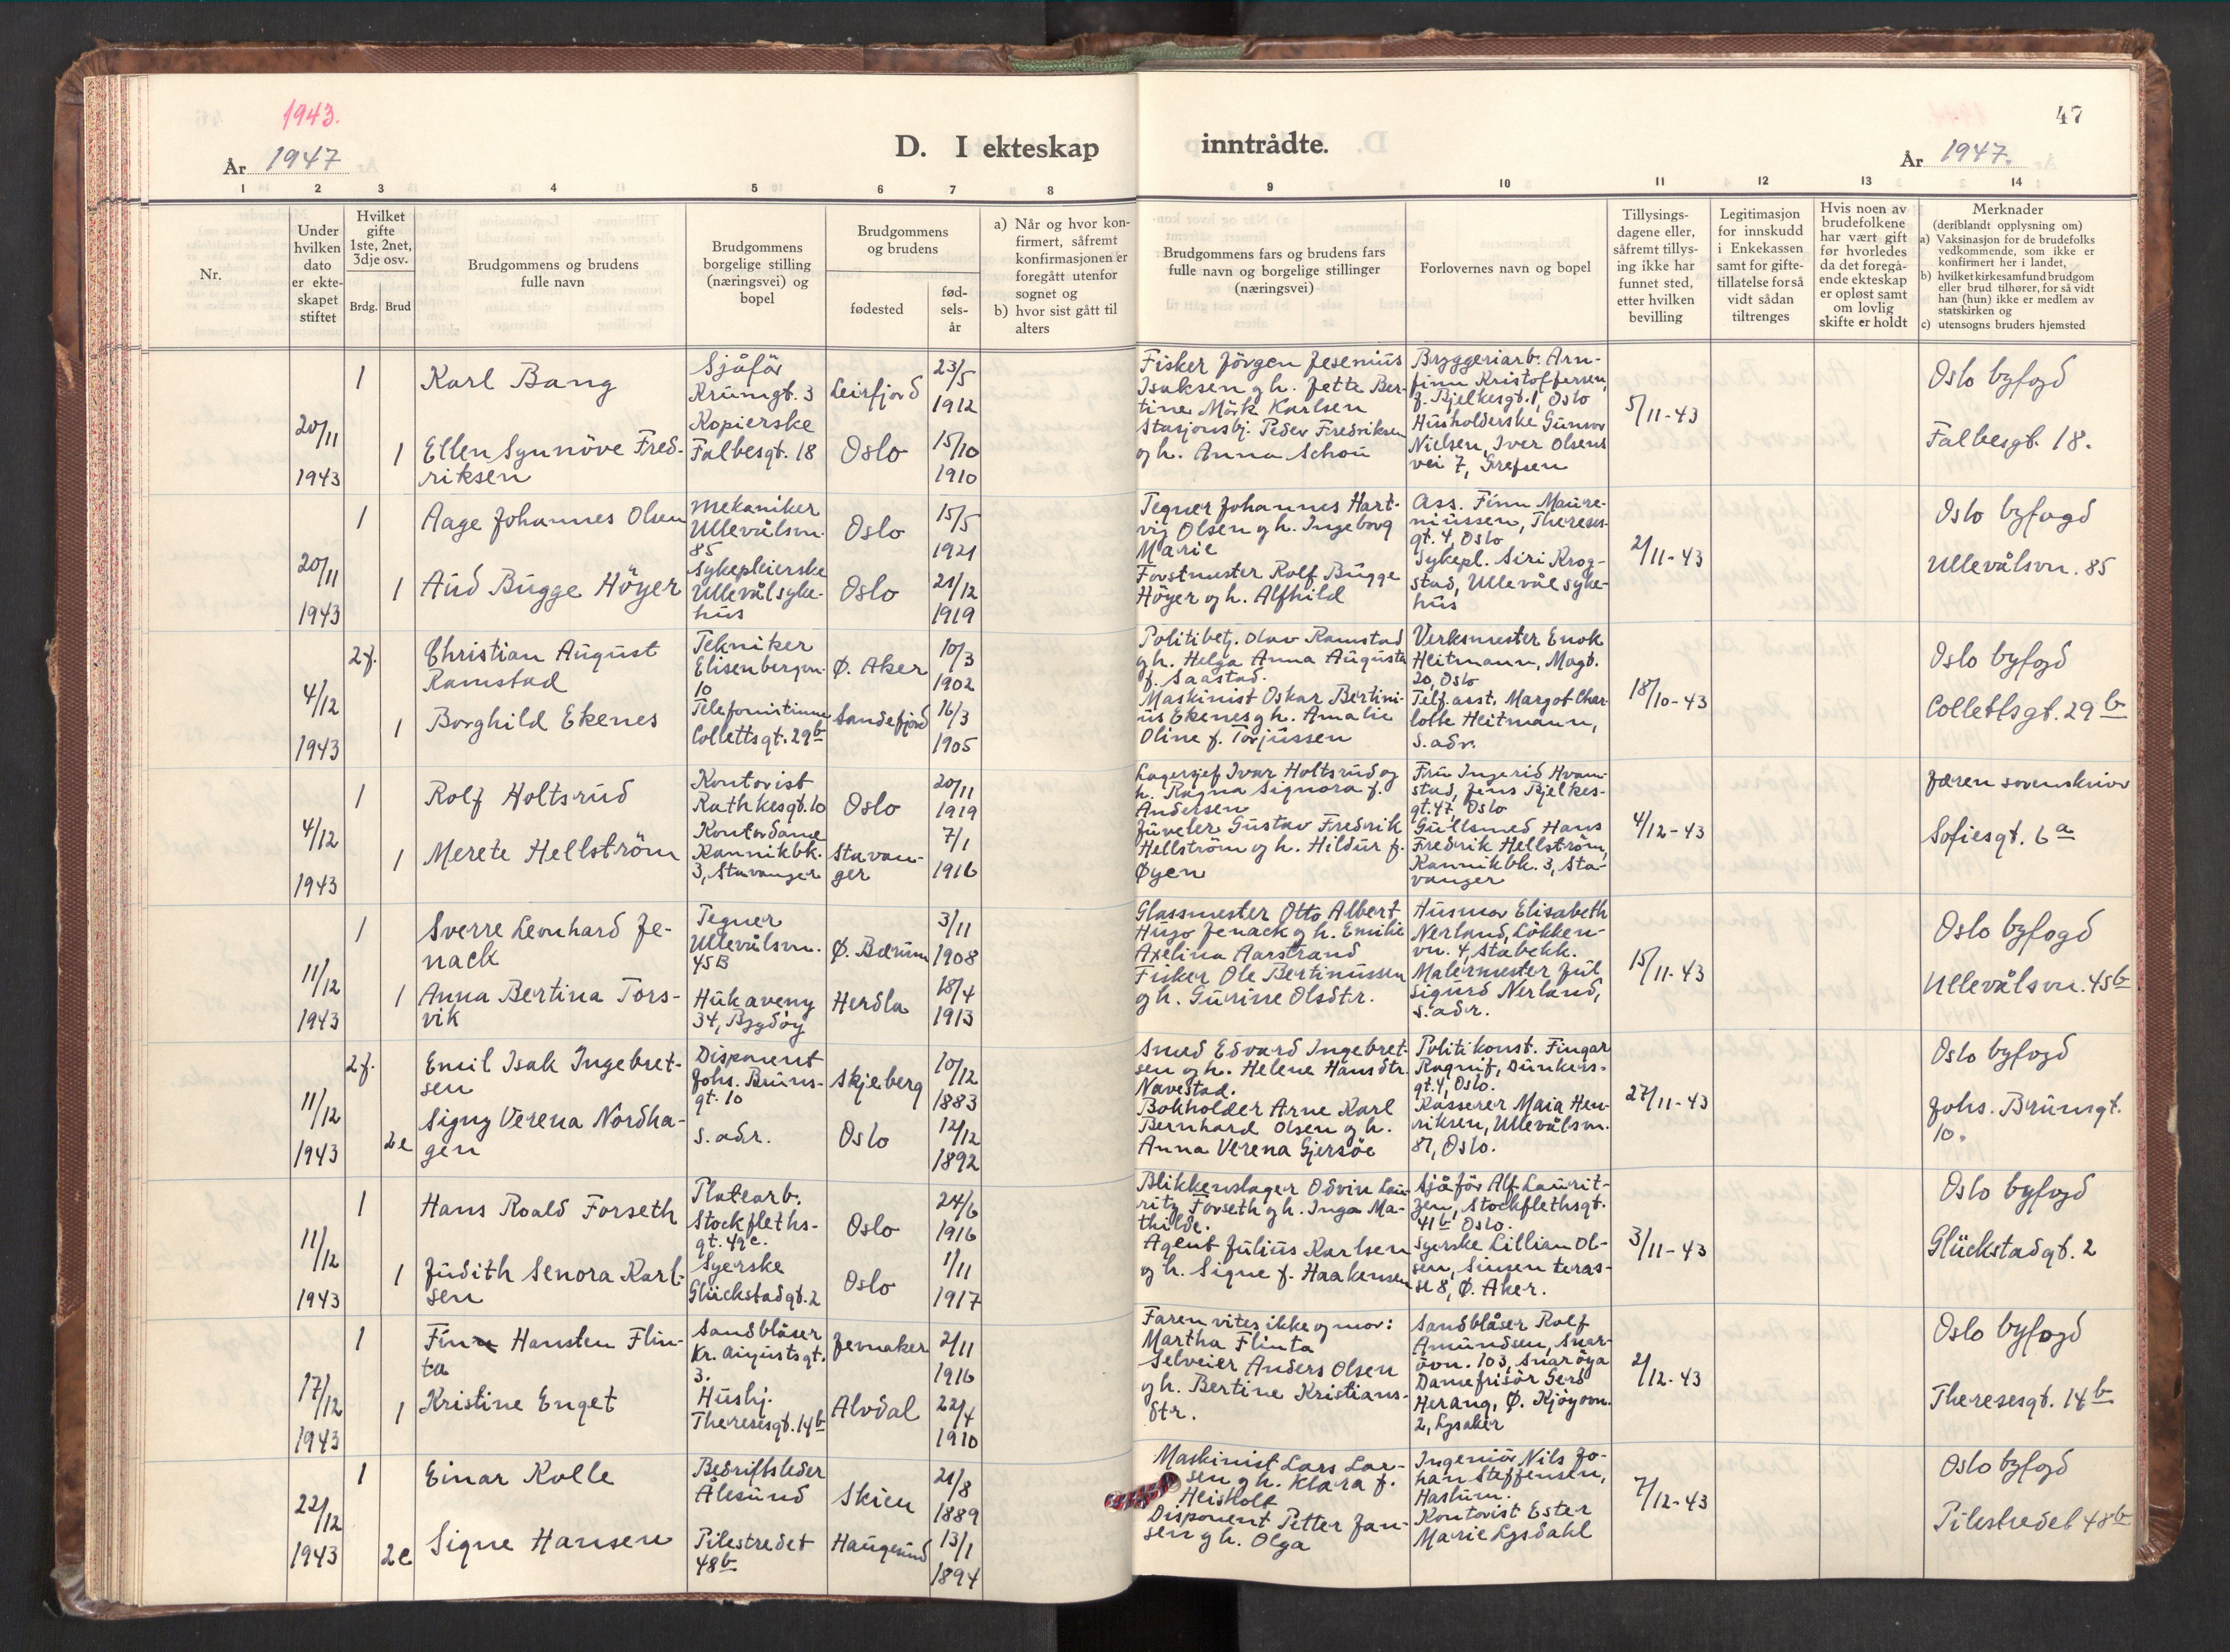 1943.
År 1947
D. I ekteskap
inntrådte.
47
År 1947.
1 2 3 4 5 6 7 8 9 10 11 12 13 14
Nr.
Under
hvilken
dato
er ekte-
skapet
stiftet
Hvilket
gifte
1ste, 2net,
3dje osv.
Brdg.
Brud
Brudgommens og brudens
fulle navn
Brudgommens
borgelige stilling
(næringsvei) og
bopel
Brudgommens
og brudens
fødested
fød-
sels-
år
a) Når og hvor kon-
firmert, såfremt
konfirmasjonen er
foregått utenfor
sognet og
b) hvor sist gått til
alters
Brudgommens fars og brudens fars
fulle navn og borgelige stillinger
(næringsvei)
Forlovernes navn og bopel
Tillysings-
dagene eller,
såfremt tillys-
ing ikke har
funnet sted,
etter hvilken
bevilling
Legitimasjon
for innskudd
i Enkekassen
samt for gifte-
tillatelse for så
vidt sådan
tiltrenges
Hvis noen av
brudefolkene
har vært gift
før hvorledes
da det foregå-
ende ekteskap
er opløst samt
om lovlig
skifte er holdt
Merknader
(deriblandt opplysning om)
a) Vaksinasjon for de brudefolks
vedkommende, som ikke er
konfirmert her i landet,
b) hvilket kirkesamfund brudgom
eller brud tilhører, for så vidt
han (hun) ikke er medlem av
statskirken og
c) utensogns bruders hjemsted
20/11
1943
1
Karl Bang
Sjåfør
Krumgt. 3
Leirfjord
23/5
1912
1
Ellen Synnöve Fred-
riksen
Kopierske
Falbesgt. 18
Oslo
15/10
1910
Fisker Jörgen Jesenius
Isaksen og h. Jette Ber-
tine Mörk Karlsen
Stasjonsbj. Peder Fredriksen
og h. Anna Schou
Bryggeriarb. Arn-
finn Kristoffersen,
J. Bjelkesgt. 1, Oslo
Husholderske Gunvor
Nielsen, Iver Olsens
vei 7, Grefsen
5/11-43
Oslo byfogd
Falbesgt. 18.
20/11
1943
1
Aage Johannes Olsen
Mekaniker
Ullevålsvn.
85
Oslo
15/5
1921
1
Aud Bugge Höyer
Sykepleierske
Ullevål syke-
hus
Oslo
21/12
1919
Tegner Johannes Hart-
vig Olsen og h. Ingeborg
Marie
Forstmester Rolf Bugge
Höyer og h. Alfhild
Ass. Finn Maure-
niussen, Thereses-
gt. 4, Oslo
Sykepl. Siri Krog-
stad, Ullevål syke-
hus
2/11-43
Oslo byfogd
Ullevålsvn. 85
4/12
1943
2f.
Christian August
Ramstad
Tekniker
Elisenbergvn.
10
Ø. Aker
10/3
1902
1
Borghild Ekenes
Telefonistinne
Collettsgt. 29b
Sandefjord
16/3
1905
Politibetj. Olav Ramstad
og h. Helga Anna Augusta
f. Saastad.
Maskinist Oskar Bertini-
us Ekenes og h. Amalie
Oline f. Torjussen
Verksmester Enok
Heitmann, Magt.
20, Oslo
Telf.asst. Margot Char-
lotte Heitmann,
s. adr.
18/10-43
Oslo byfogd
Collettsgt. 29b
4/12
1943
1
Rolf Holtsrud
Kontorist
Rathkesgt. 10
Oslo
20/11
1919
1
Merete Hellström
Kontordame
Kannikbk.
3, Stavanger
Stavan-
ger
7/1
1916
Lagersjef Ivar Holtsrud og
h. Ragna Signora f.
Andersen
Juveler Gustav Fredrik
Hellström og h. Hildur f.
Øyen
Fru Ingerid Hvam-
stad, Jens Bjelkes-
gt. 47, Oslo
Gullsmed Hans
Fredrik Hellström,
Kannikbk. 3, Sta-
vanger
4/12-43
Jæren sorenskriver
Sofiesgt. 6a
11/12
1943
1
Sverre Leonhard Je-
nack
Tegner
Ullevålsvn.
45B
Ø. Bærum
3/11
1908
1
Anna Bertina Tors-
vik
Huk aveny
34, Bygdöy
Herdla
18/4
1913
Glassmester Otto Albert
Hugo Jenack og h. Emilie
Axelina Aarstrand
Fisker Ole Bertinussen
og h. Gurine Olsdtr.
Husmor Elisabeth
Nerland, Lökken-
vn. 4, Stabekk.
Malermester Jul
Sigurd Nerland,
s. adr.
15/11-43
Oslo byfogd
Ullevålsvn. 45b
11/12
1943
2f.
Emil Isak Ingebret-
sen
Disponent
Johs. Bruns-
gt. 10
Skjeberg
10/12
1883
2e
Signy Verena Nordha-
gen
s. adr.
Oslo
12/12
1892
Smed Edvard Ingebret-
sen og h. Helene Hansdtr.
Navestad.
Bokholder Arne Karl
Bernhard Olsen og h.
Anna Verena Gjersöe
Politikonst. Fingar
Ragnif, Dunkers-
gt. 4, Oslo.
Kasserer Maia Hen-
riksen, Ullevålsvn.
87, Oslo.
27/11-43
Oslo byfogd
Johs. Brunsgt.
10.
11/12
1943
1
Hans Roald Forseth
Platearb.
Stockfleths-
gt. 49c.
Oslo
24/6
1916
1
Judith Senora Karl-
sen
Syerske
Glückstadgt. 2
Oslo
1/11
1917
Blikkenslager Odvin Lau-
ritz Forseth og h. Inga Ma-
thilde.
Agent Julius Karlsen
og h. Signe f. Haakensen
Sjåför Alf Laurit-
zen, Stockflethsgt.
41b Oslo.
Syerske Lillian Ol-
sen, Sinsen teras-
se 8, Ø. Aker.
3/11-43
Oslo byfogd
Glückstadgt. 2
17/12
1943
1
Finn Hansten Flin-
ta
Sandblåser
Kr. Augustsgt.
3.
Jevnaker
2/11
1916
1
Kristine Enget
Hushj.
Theresesgt. 14b
Alvdal
22/4
1910
Faren vites ikke og mor:
Martha Flinta
Selveier Anders Olsen
og h. Bertine Kristians-
dtr.
Sandblåser Rolf
Amundsen, Snar-
övn. 103, Snaröya
Damefrisör Gerd
Herang, Ø. Kjögovn.
2, Lysaker
2/12-43
Oslo byfogd
Theresesgt. 14b
22/12
1943
1
Einar Kolle
Bedriftsleder
Ålesund
Skien
21/8
1889
2e
Signe Hansen
Pilestredet
48b
Haugesund
13/1
1894
Maskinist Lars Lar-
sen og h. Klara f.
Heisholt
Disponent Petter Jan-
sen og h. Olga
Ingeniör Nils Jo-
han Steffensen,
Haslum.
Kontorist Ester
Marie Lysdahl
7/12-43
Oslo byfogd
Pilestredet 48b